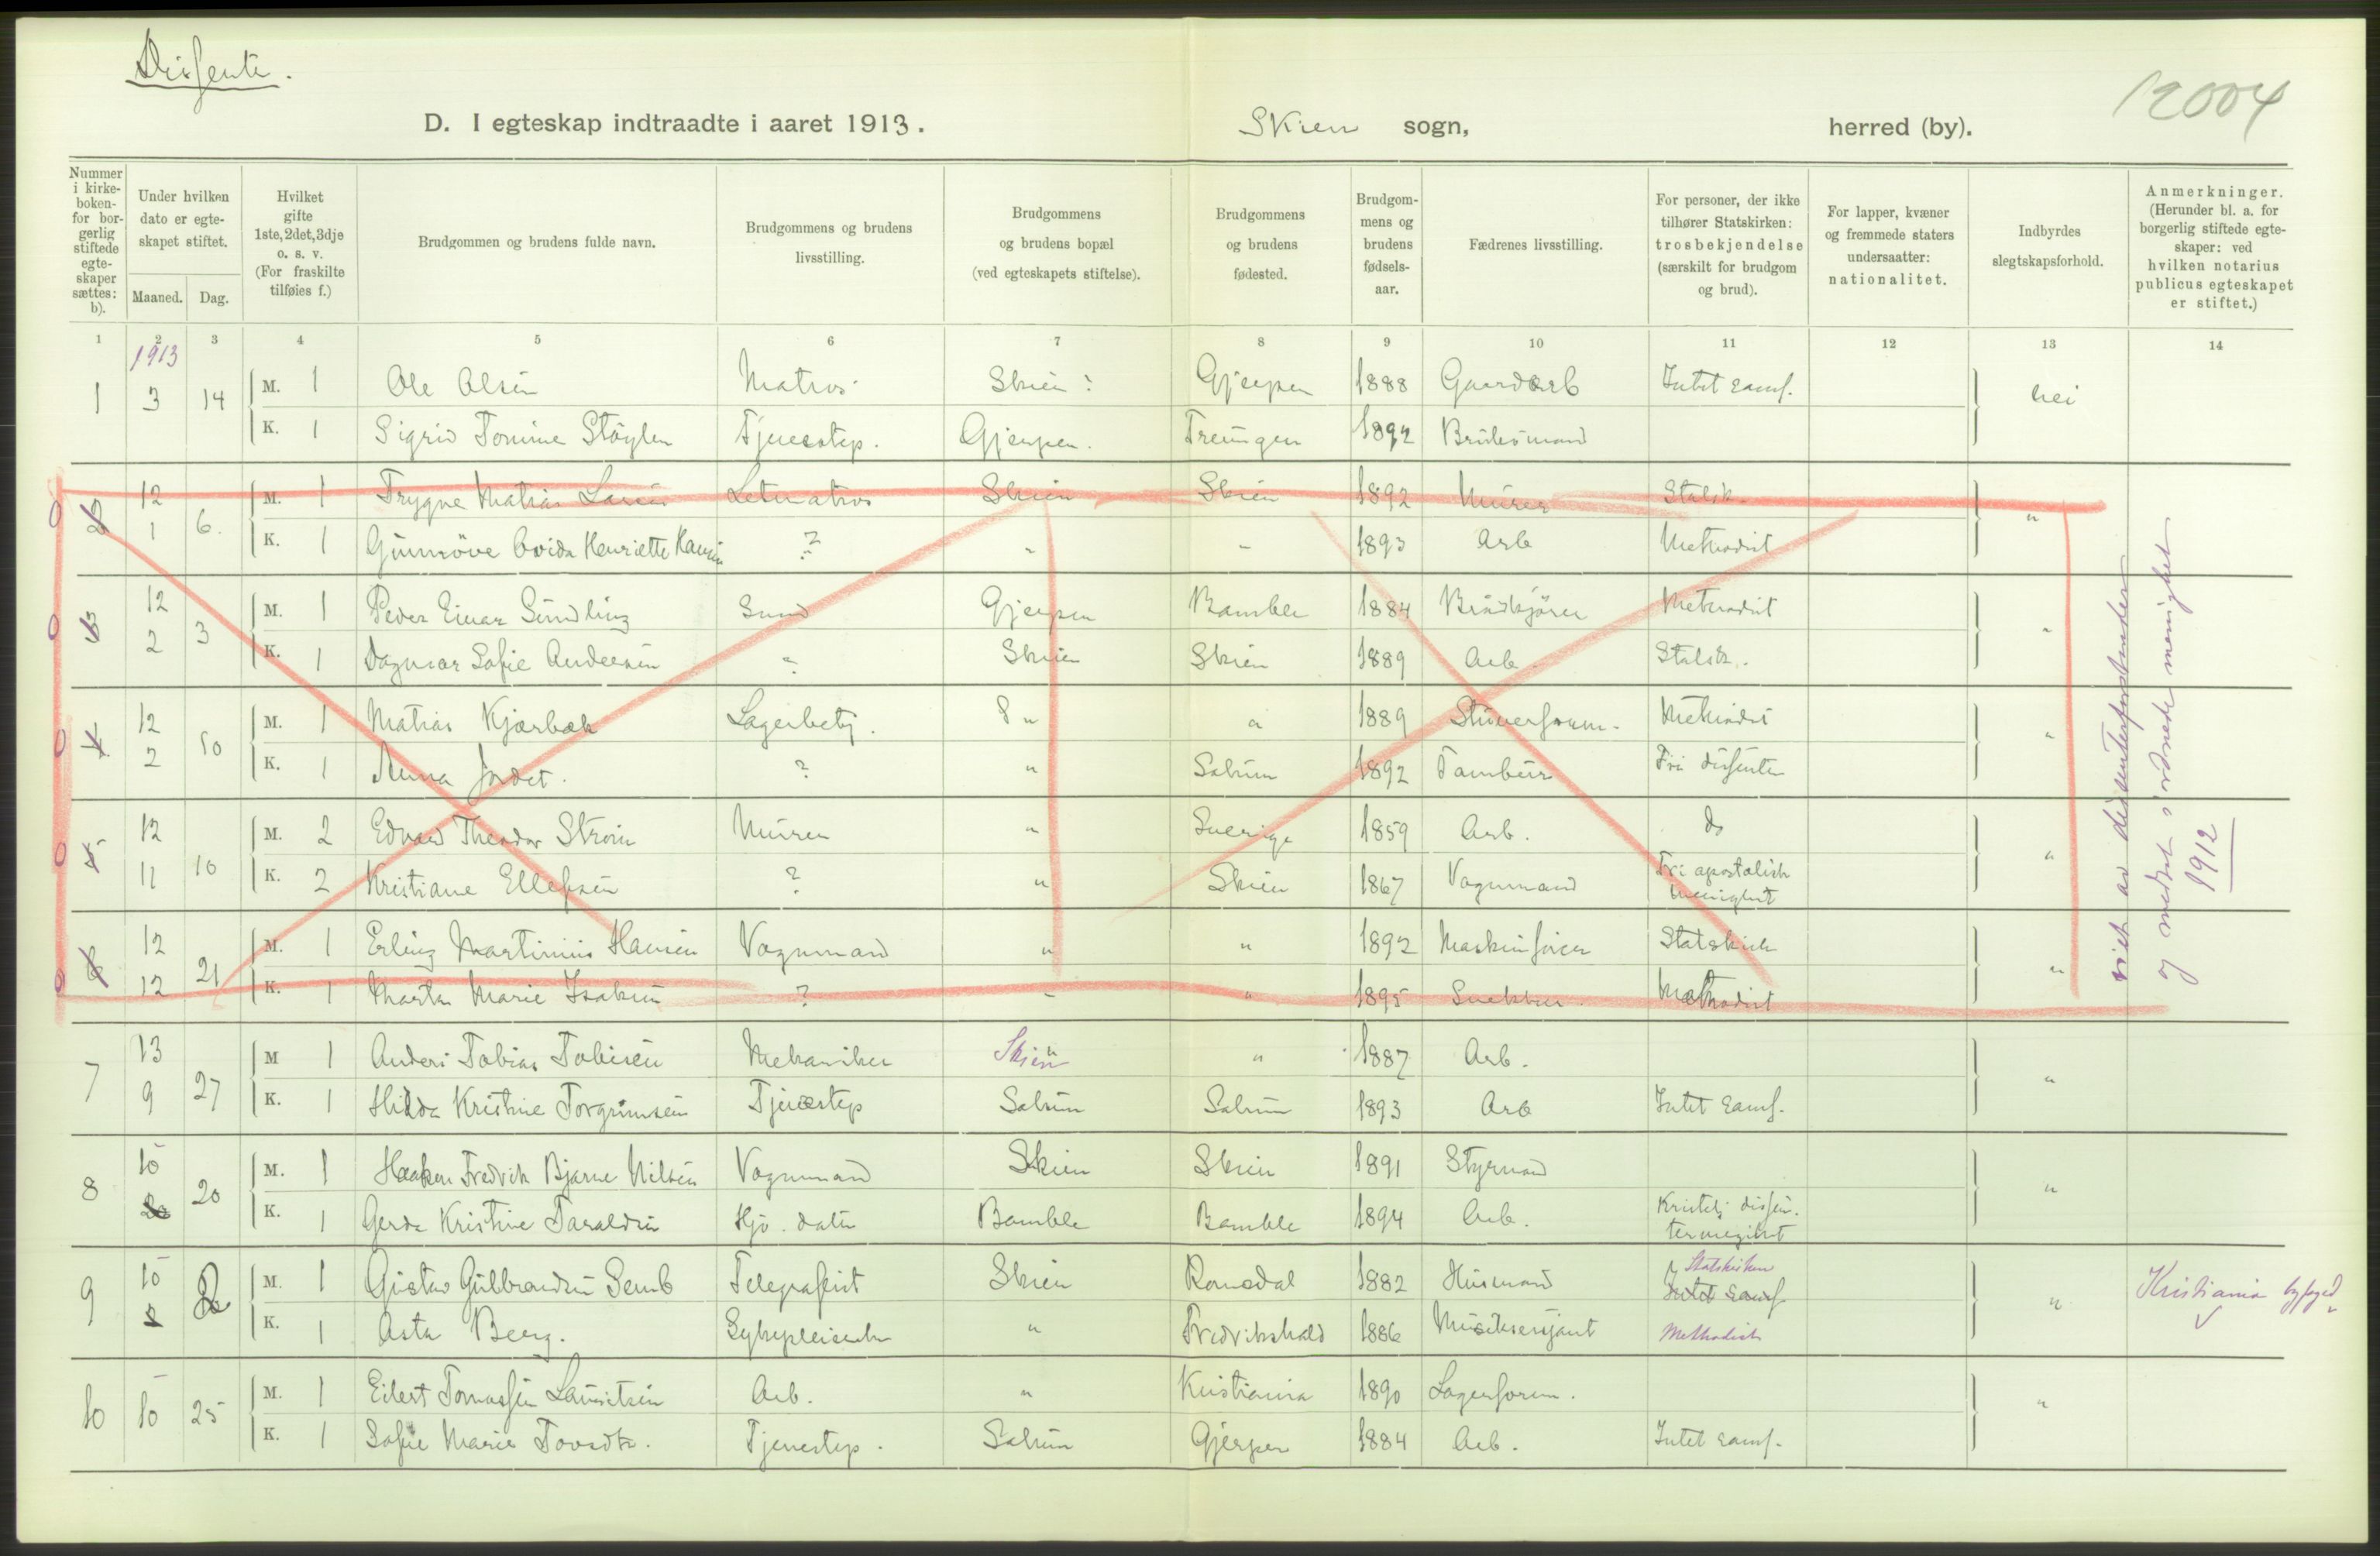 Dissente.
12004
D. I egteskap indtraadte i aaret 1913. Skien sogn, herred (by).
Nummer i kirke-boken- for bor-gerlig stiftede egte-skaper sættes: b).
Under hvilken dato er egte-skapet stiftet.
Maaned. Dag.
Hvilket gifte 1ste, 2det, 3dje o. s. v. (For fraskilte tilføies f.)
Brudgommen og brudens fulde navn.
Brudgommens og brudens livsstilling.
Brudgommens og brudens bopæl (ved egteskapets stiftelse).
Brudgommens og brudens fødested.
Brudgom-mens og brudens fødsels-aar.
Fædrenes livsstilling.
For personer, der ikke tilhører Statskirken: trosbekjendelse (særskilt for brudgom og brud).
For lapper, kvæner og fremmede staters undersaatter: nationalitet.
Indbyrdes slegtskapsforhold.
Anmerkninger. (Herunder bl. a. for borgerlig stiftede egte-skaper: ved hvilken notarius publicus egteskapet er stiftet.)
1 2 3 4 5 6 7 8 9 10 11 12 13 14
1913
1 3 14 M. 1 Ole Olsen Matros Skien Gjerpen 1888 Gaardarb Intet samf. nei
K. 1 Sigrid Tomine Støylen Tjenestep. Gjerpen. Treungen 1892 Bruksmand
2 12 1 6. M. 1 Trygve Matias Larsen Letmatros Skien Skien 1892 Murer Statsk. "
K. 1 Gunnøve Ovida Henriette Hansen ? " " 1893 Arb Methodist
3 12 2 3 M. 1 Peder Einar Sundling Smed Gjerpen Bamble 1884 Brødkjører Methodist "
K. 1 Dagmar Sofie Andersen " Skien Skien 1889 Arb. Statsk.
4 12 2 10 M. 1 Matias Kjærbæk Lagerbetj. " " 1889 Stuerform. Methodist "
K. 1 Anna Jordet. ? " Solum 1892 Tambur Fri dissenter
5 12 11 10 M. 2 Edvard Theodor Strøm Murer " Sverige 1859 Arb. do "
K. 2 Kristiane Ellefsen ? " Skien 1867 Vognmand Fri apostolisk menighet
6 12 12 21 M. 1 Erling Martinius Hansen Vognmand " " 1892 Maskinfører Statskirk "
K. 1 Marta Marie Isaksen ? " " 1895 Snekker. Methodist
viet av dissenterforstander og medtat i ordnede menighet 1912
7 13 9 27 M 1 Anders Tobias Tobisen Mekaniker Skien " 1887 Arb. "
K. 1 Hilda Kristine Torgrimsen Tjenestep Solum Solum 1893 Arb Intet samf.
8 10 20 M. 1 Haakon Fredrik Bjarne Nilsen Vognmand Skien Skien 1891 Styrmand "
K. 1 Gerda Kristine Taraldsen Hj. datter Bamble Bamble 1894 Arb. Kristeli dissen-termenighet
9 10 2 M. 1 Gustav Gulbrandsen Semb Telegrafist Skien Romsdal 1882 Husmand Statskirken Intet samf " Kristiania byfoged
K. 1 Asta Berg. Sykepleierske " Fredrikshald 1886 Musiksersjant Methodist
10 10 25 M. 1 Eilert Tomassen Lauritsen Arb. " Kristiania 1890 Lagerform. "
K. 1 Sofie Marie Tovsdt. Tjenestep. Solum Gjerpen 1884 Arb. Intet samf.